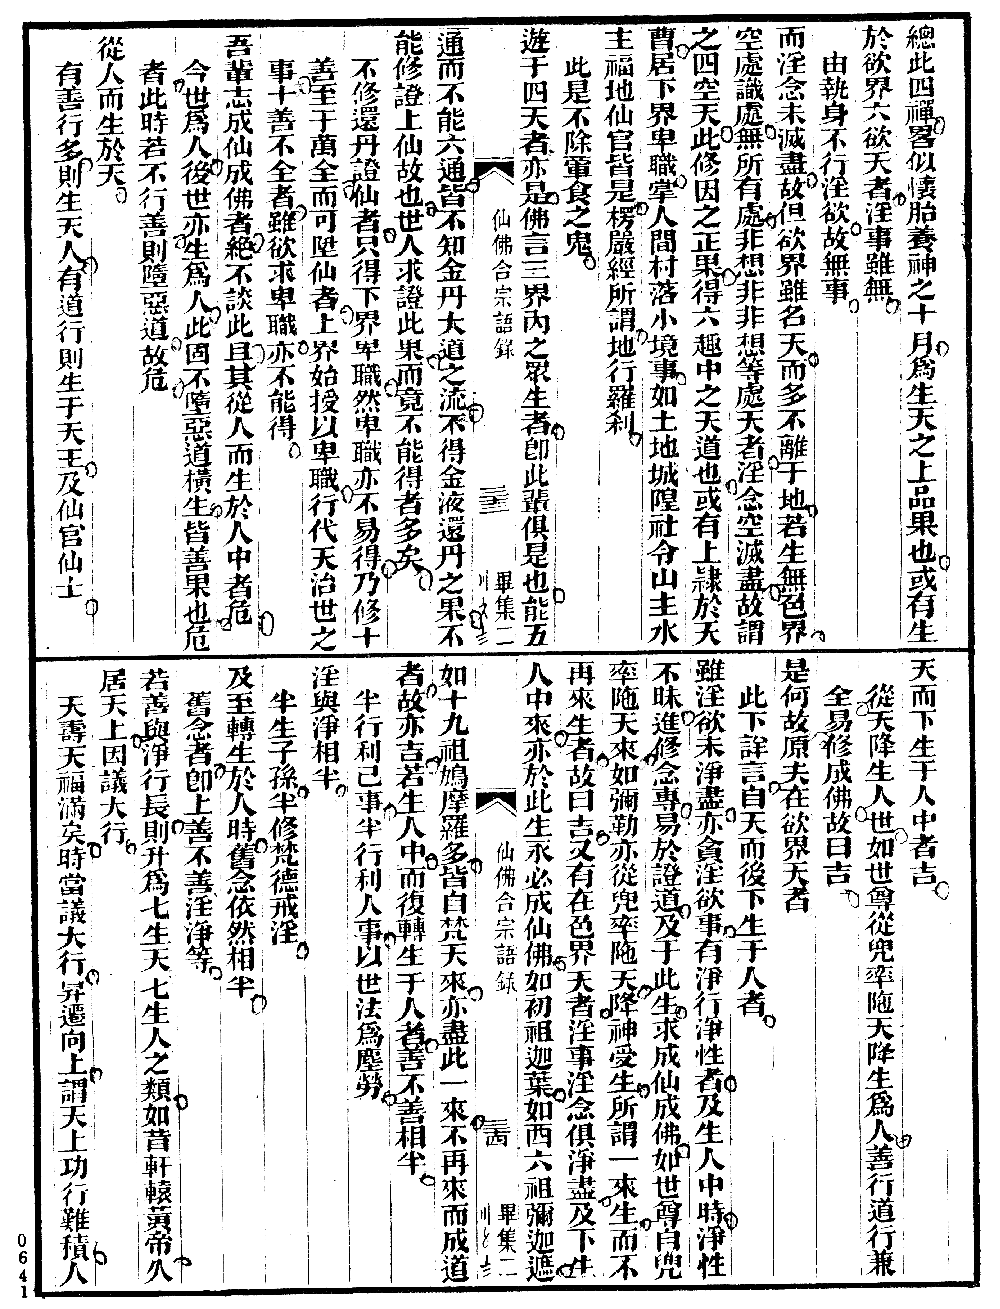 總此四禪畧似懷胎養神之十月爲生天之上品果也或有生
於欲界六欲天者淫事雖無
由執身不行淫欲故無事
而淫念未滅盡故但欲界雖名天而多不離于地若生無色界
空處識處無所有處非想非非想等處天者淫念空滅盡故謂
之四空天此修因之正果得六趣中之天道也或有上隷於天
曹居下界卑職掌人間村落小境事如土地城隍社令山主水
主福地仙官皆是楞嚴經所謂地行羅刹
此是不除葷食之鬼
遊于四天者亦是佛言三界內之眾生者卽此輩俱是也能五
仙佛合宗語錄
畢集二
通而不能六通皆不知金丹大道之流不得金液還丹之果不
能修證上仙故也世人求證此果而竟不能得者多矣
不修還丹證仙者只得下界卑職然卑職亦不易得乃修十
善至于萬全而可陞仙者上界始授以卑職行代天治世之
事十善不全者雖欲求卑職亦不能得
吾輩志成仙成佛者絶不談此且其從人而生於人中者危
今世爲人後世亦生爲人此固不墮惡道橫生皆善果也危
者此時若不行善則墮惡道故危
從人而生於天
有善行多則生天人有道行則生于天王及仙官仙士
天而下生于人中者吉
從天降生人世如世尊從兜率陁天降生爲人善行道行兼
全易修成佛故曰吉
是何故原夫在欲界天者
此下詳言自天而後下生于人者
雖淫欲未淨盡亦貪淫欲事有淨行淨性者及生人中時淨性
不昧進修念專易於證道及于此生求成仙成佛如世尊自兜
率陁天來如彌勒亦從兜率陁天降神受生所謂一來生而不
再來生者故曰吉又有在色界天者淫事淫念俱淨盡及下生
人中來亦於此生永必成仙佛如初祖迦葉如西六祖彌迦遮
仙佛合宗語錄
畢集二
如十九祖鳩摩羅多皆自梵天來亦盡此一來不再來而成道
者故亦吉若生人中而復轉生于人者善不善相半
半行利己事半行利人事以世法爲塵勞
淫與淨相半
半生子孫半修梵德戒淫
及至轉生於人時舊念依然相半
舊念者卽上善不善淫淨等
若善與淨行長則升爲七生天七生人之類如昔軒轅黃帝久
居天上因議大行
天壽天福滿矣時當議大行昇遷向上謂天上功行難積人
0641